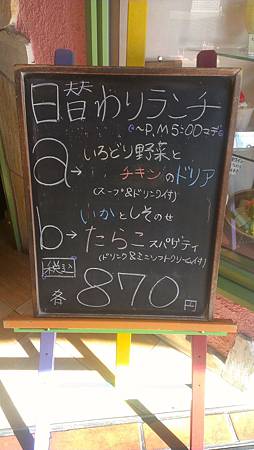 日替わりランチ
～P,M5:00マデ
a→いろどり野菜と
チキンのドリア
(スープ&ドリンク付)
b→いかとしそのせ
たらこスパゲティ
(ドリンク&ミニソフトクリーム付)
税込
各870円